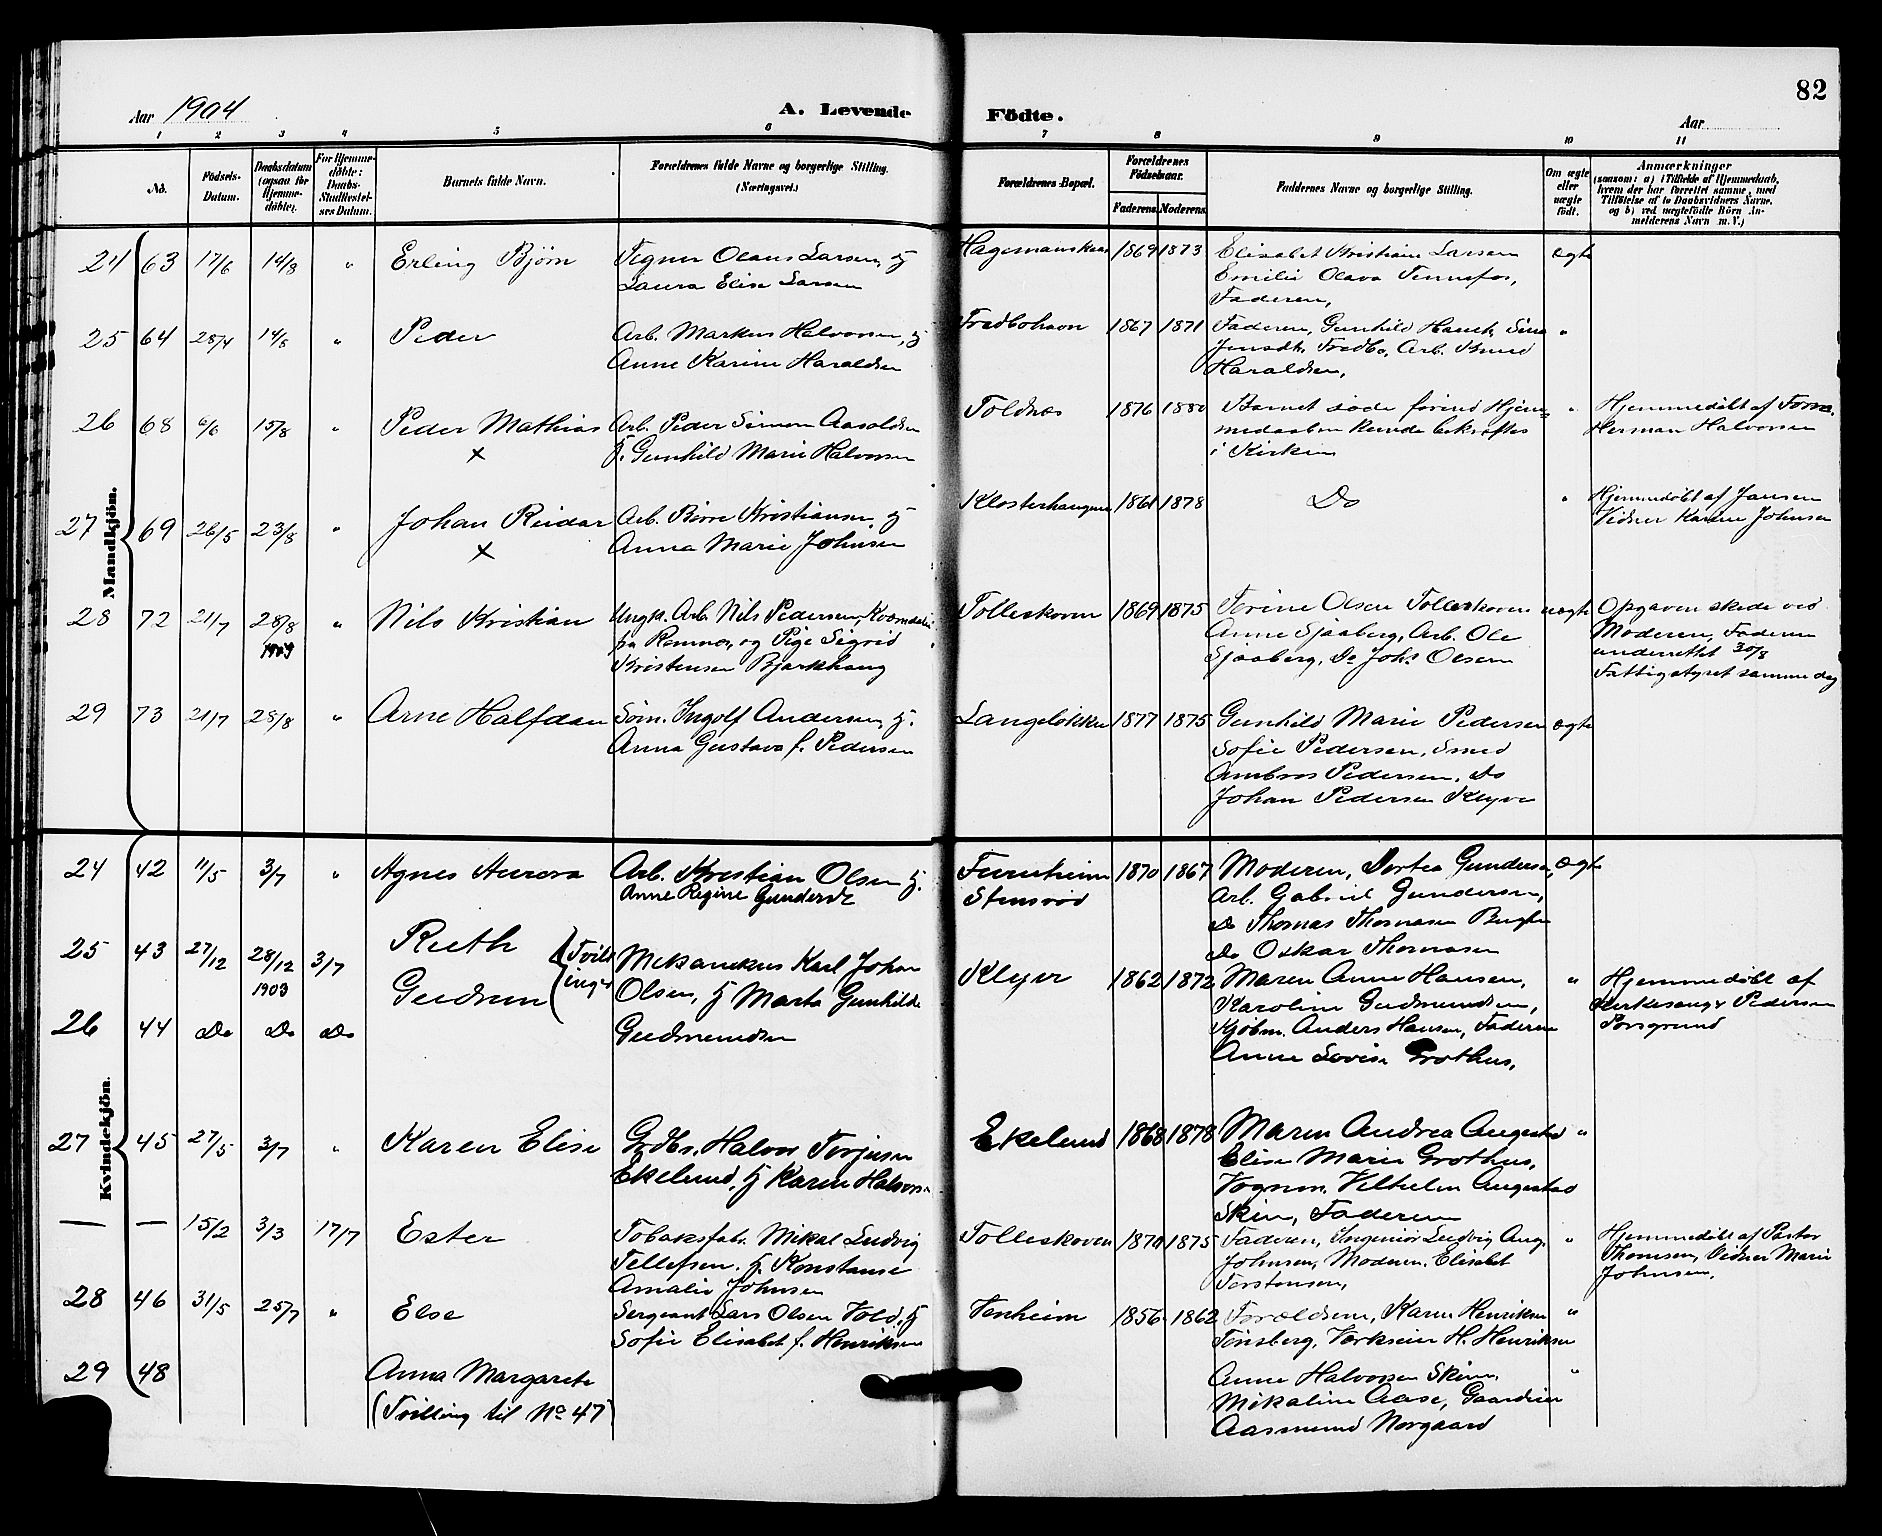 82
Aar 1904
A. Levende
Födte.
Aar
1 2 3 4 5 6 7 8 9 10 11
No.
Födsels-
Datum.
Daabsdatum
(ogsaa for
Hjemme-
döbte).
For Hjemme-
döbte:
Daabs-
Stadfæstel-
ses Datum.
Barnets fulde Navn.
Forældrenes fulde Navne og borgerlige Stilling.
(Næringsvei.)
Forældrenes Bopæl.
Forældrenes
Födselsaar.
Faderens. Moderens.
Faddernes Navne og borgerlige Stilling.
Om ægte
eller
uægte
födt.
Anmærkninger
(saasom: a) i Tilfælde af Hjemmedaab,
hvem der har forrettet samme, med
Tilföielse af to Daabsvidners Navne,
og b) ved uægtefödte Börn An-
melderens Navn m. V.)
Mandkjön.
24 63 17/6 14/8 " Erling Björn
Tegner Olaus Larsen, &
Laura Elise Larsen
1869 1873
Elisabet Kristiane Larsen
Emilie Olava Tennefos,
Faderen,
ægte
25 64 28/4 14/8 " Peder
Arb. Markus Halvorsen, &
Anne Karine Haraldsen
1867 1871
Faderen, Gunhild
Arb. Knud
Haraldsen,
"
26 68 6/6 15/8 " Peder Mathias
x
Arb. Peder Simon Aasoldsen
f. Gunhild Marie Halvorsen
Toldnæs 1876 1880
Barnet döde forind Hjem-
medaaben kunde bekræftes
i Kirken
"
Hjemmedöbt af
Herman Halvorsen
27 69 26/5 23/8 " Johan Reidar
x
Arb. Börre Kristiansen, &
Anna Marie Johnsen
Klosterhaugen 1861 1878
Do
"
Hjemmedöbt af Jansen
Vidner Karine Johnsen
28 72 21/7 28/8 " Nils Kristian
1904
Ungk. Arb. Nils Pedersen
fra Ramnes, og Pige Sigrid
Kristensen Bjarkhaug
Tolleskoven 1869 1875
Terine Olsen Tolleskoven
Anne Sjaaberg, Arb. Ole
Sjaaberg, Do Johs Olsen
uægte
Opgaven skede ved
Moderen, Faderen
underrettet 30/8
Fattigstyret samme dag
29 73 21/7 28/8 " Arne Halfdan
Söm. Ingolf Andersen, &
Anna Gustava f. Pedersen
Langelökken 1877 1875
Gunhild Marie Pedersen
Sofie Pedersen, Smed
Ambros Pedersen, Do
Johan Pedersen Klyve
ægte
Kvindekjön.
24 42 11/5 3/7 " Agnes Aurora
Arb. Kristian Olsen &
Anne Regine Gundersdt
Furuheim
Stensrød
1870 1867
Moderen, Dortea Gundersen,
Arb. Gabriel Gundersen,
Do Thomas Thomasen
Do Oskar Thomasen
ægte
25 43 27/12 28/12 3/7 Ruth
1903
Gudrun
(Tvill
inger
26 44 Do Do Do
Mekanikus Karl Johan
Olsen, & Marta Gunhilde
Gudmundsen
Klyve 1862 1872
Maren Anne Hansen,
Karoline Gudmundsen,
Kjöbm. Anders Hansen, Faderen
Anne Lovise Grothus,
"
Hjemmedöbt af
Kirkesanger Pedersen
Porsgrund
27 45 27/5 3/7 " Karen Elise
Grdbr. Halvor Torjusen
Ekelund, & Karen Halvorsen
Ekelund 1868 1878
Maren Andrea Augestad
Elise Marie Grothus,
Vognm. Vilhelm Augestad
Skien, Faderen
"
— — 15/2 3/3 17/7 Ester
Tobaksfabr. Mikal Ludvig
Tellefsen, f. Konstanse
Amalie Johnsen
Tolleskoven 1870 1875
Faderen, Ingeniör Ludvig Aug.
Johnsen, Moderen, Elisabet
Torstensen,
"
Hjemmedöbt af Pastor
Thomsen, Vidner Marie
Johnsen,
28 46 31/5 25/7 " Else
Sergeant Lars Olsen Vold, &
Sofie Elisabet f. Henriksen
Venheim 1856 1862
Forældrene, Karen Henriksen
Tönsberg, Værkseier H. Henriksen
"
29 48 Anna Margarete
(Tvilling til No 47)
Anne Halvorsen Skien,
Mikaline Aase, Gaardeier
Aasmund Norgaard
"